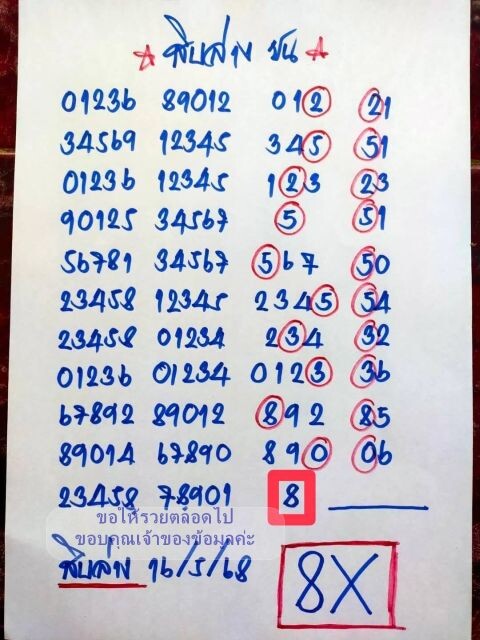 ☆ สิบล่าง ชน ☆
01236 89012 012 21
34569 12345 345 51
01236 12345 123 23
90125 34567 5 51
56781 34567 567 50
23458 12345 2345 54
23458 01234 234 32
01236 01234 0123 36
67892 89012 892 85
89014 67890 890 06
23458 78901 8
ขอให้รวยตลอดไป
ขอบคุณเจ้าของข้อมูลค่ะ
สิบล่าง 16/5/68
8X